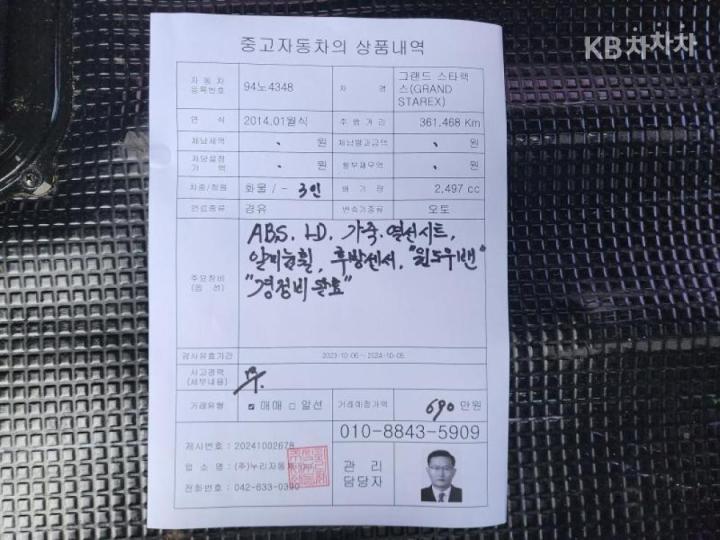 KB차차차
중고자동차의 상품내역
자동차 등록번호 94노4348 차 명 그랜드 스타렉스(GRAND STAREX)
연 식 2014.01월식 주행거리 361.468 Km
체납세액 원 체납범과금액 원
저당설정가액 원 할부채무액 원
차종/정원 화물 / - 3인 배기량 2,497 cc
연료종류 경유 변속기종류 오토
주요장비 (옵 션)
ABS. LD. 가죽.열선시트,
알미늄휠, 후방센서, "윈도우밴"
"경정비완료"
검사유효기간 2023-10-06~2024-10-05
사고경력 (세부내용) 무.
거래유형 매매 □ 알선 거래예정가액 690 만원
010-8843-5909
제시번호 : 20241002678
업 소 명 : (주)누리자동차
전화번호 : 042-633-0390
관 리
담당자